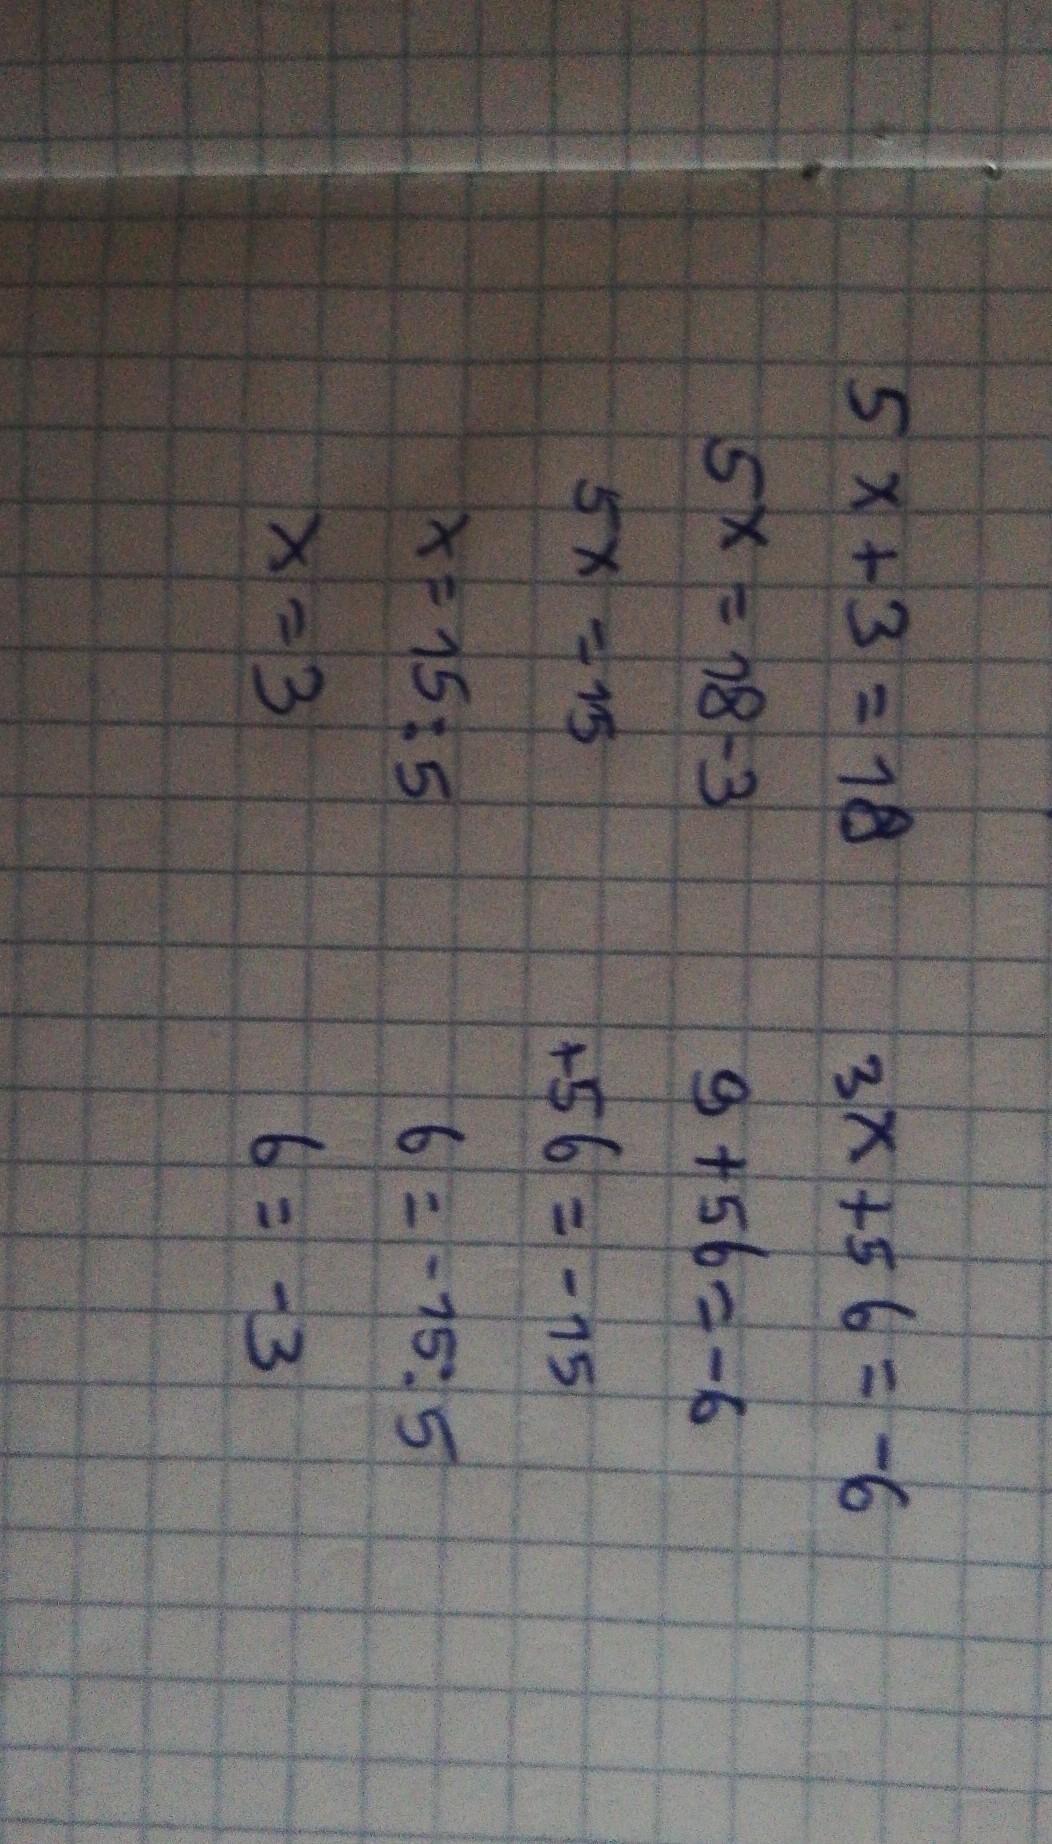 5x+3=18
5x=18-3
5x=15
x=15:5
x=3
3x+56=-6
9+56=-6
+56=-15
6=-15:5
6=-3